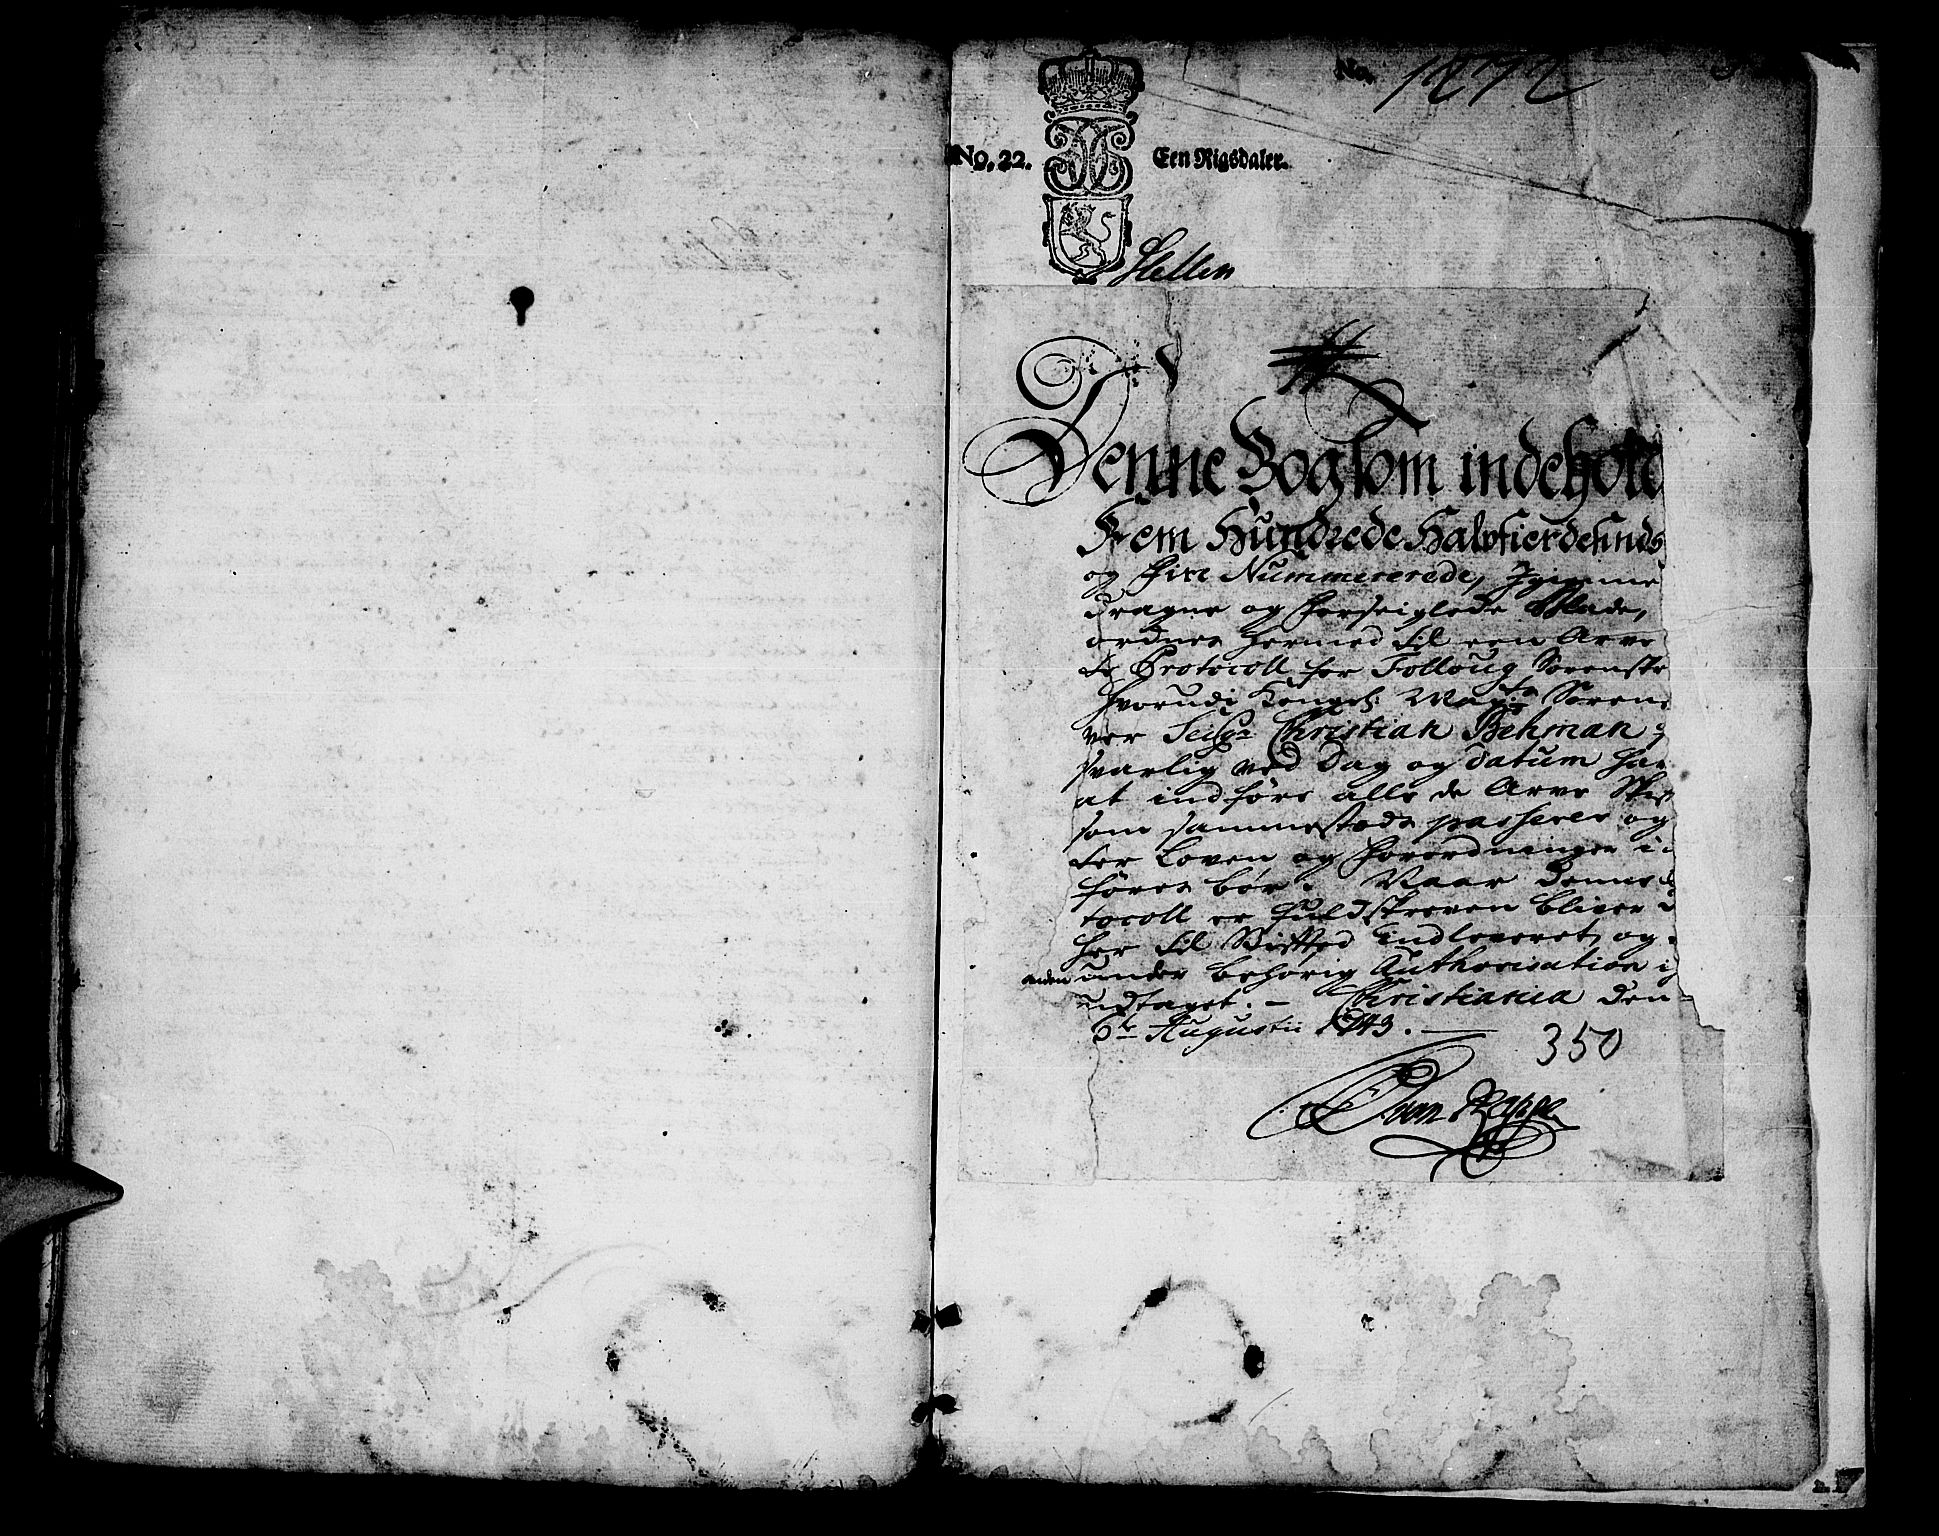 No. 1872
No. 22. Een Rigsdaler.
Hellen
Denne Bog som indehold
Fem Hundrede Halvfierdesinds
og Fire Nummererede, Igienne
dragne og Forseiglede Blade,
ordnes hermed til een Arve
Protocoll for Folloug Sorenskr
hvorudi Kongel: Mayts Soren
ver Seigr Christian Behman
svarlig ved Dag og datum har
at indføre alle de Arve Skif
som sammestæds passerer og
ter Loven og Forordninger i
føres bør. Naar denne
tocoll er fuldskreven bliver
her til Stifted indleveret, og
anden under behørig Authorisation i
udtaget. – Christiania den
6te Augustii 1743.
350
Rappe